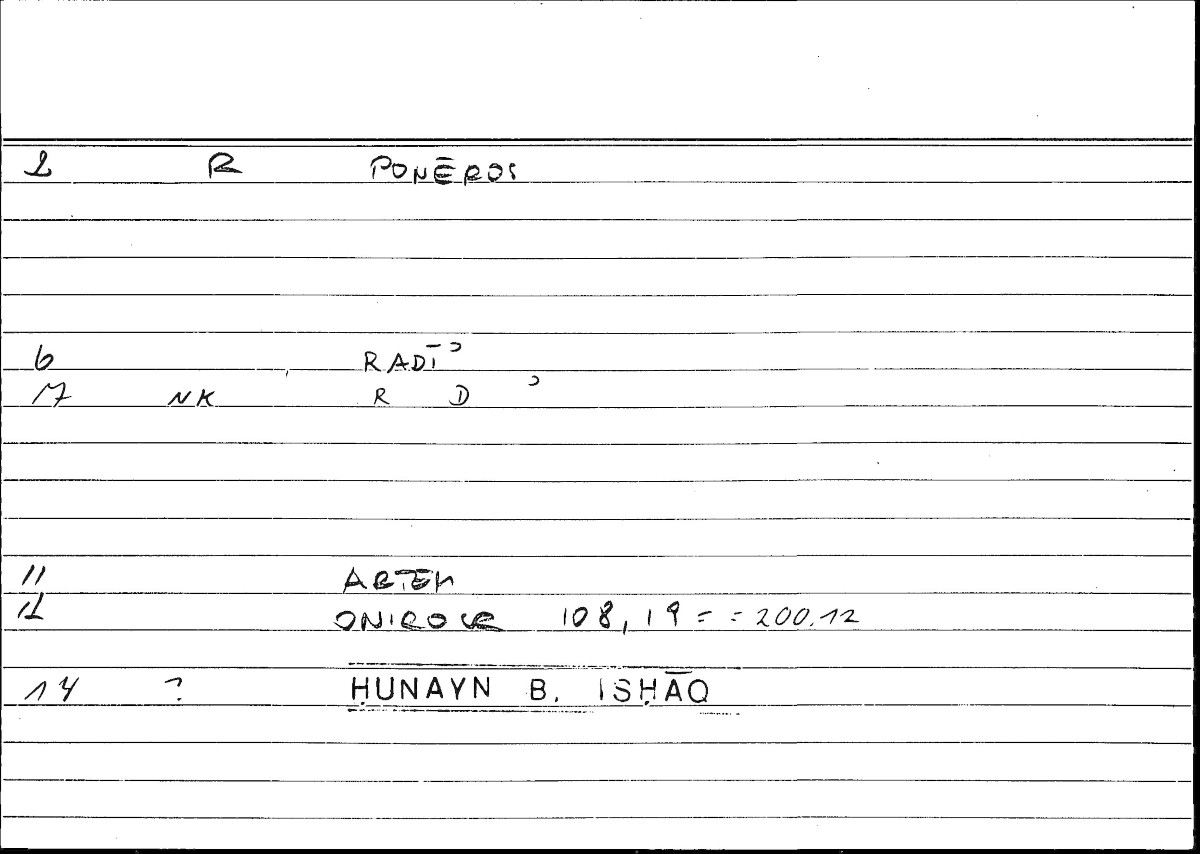 2 R PONĒROS
6 RADĪʾ
17 NK R D ʾ
11 ARTEM
12 ONIROCR 108,19 = = 200.12
14 ? ḤUNAYN B. ISḤĀQ